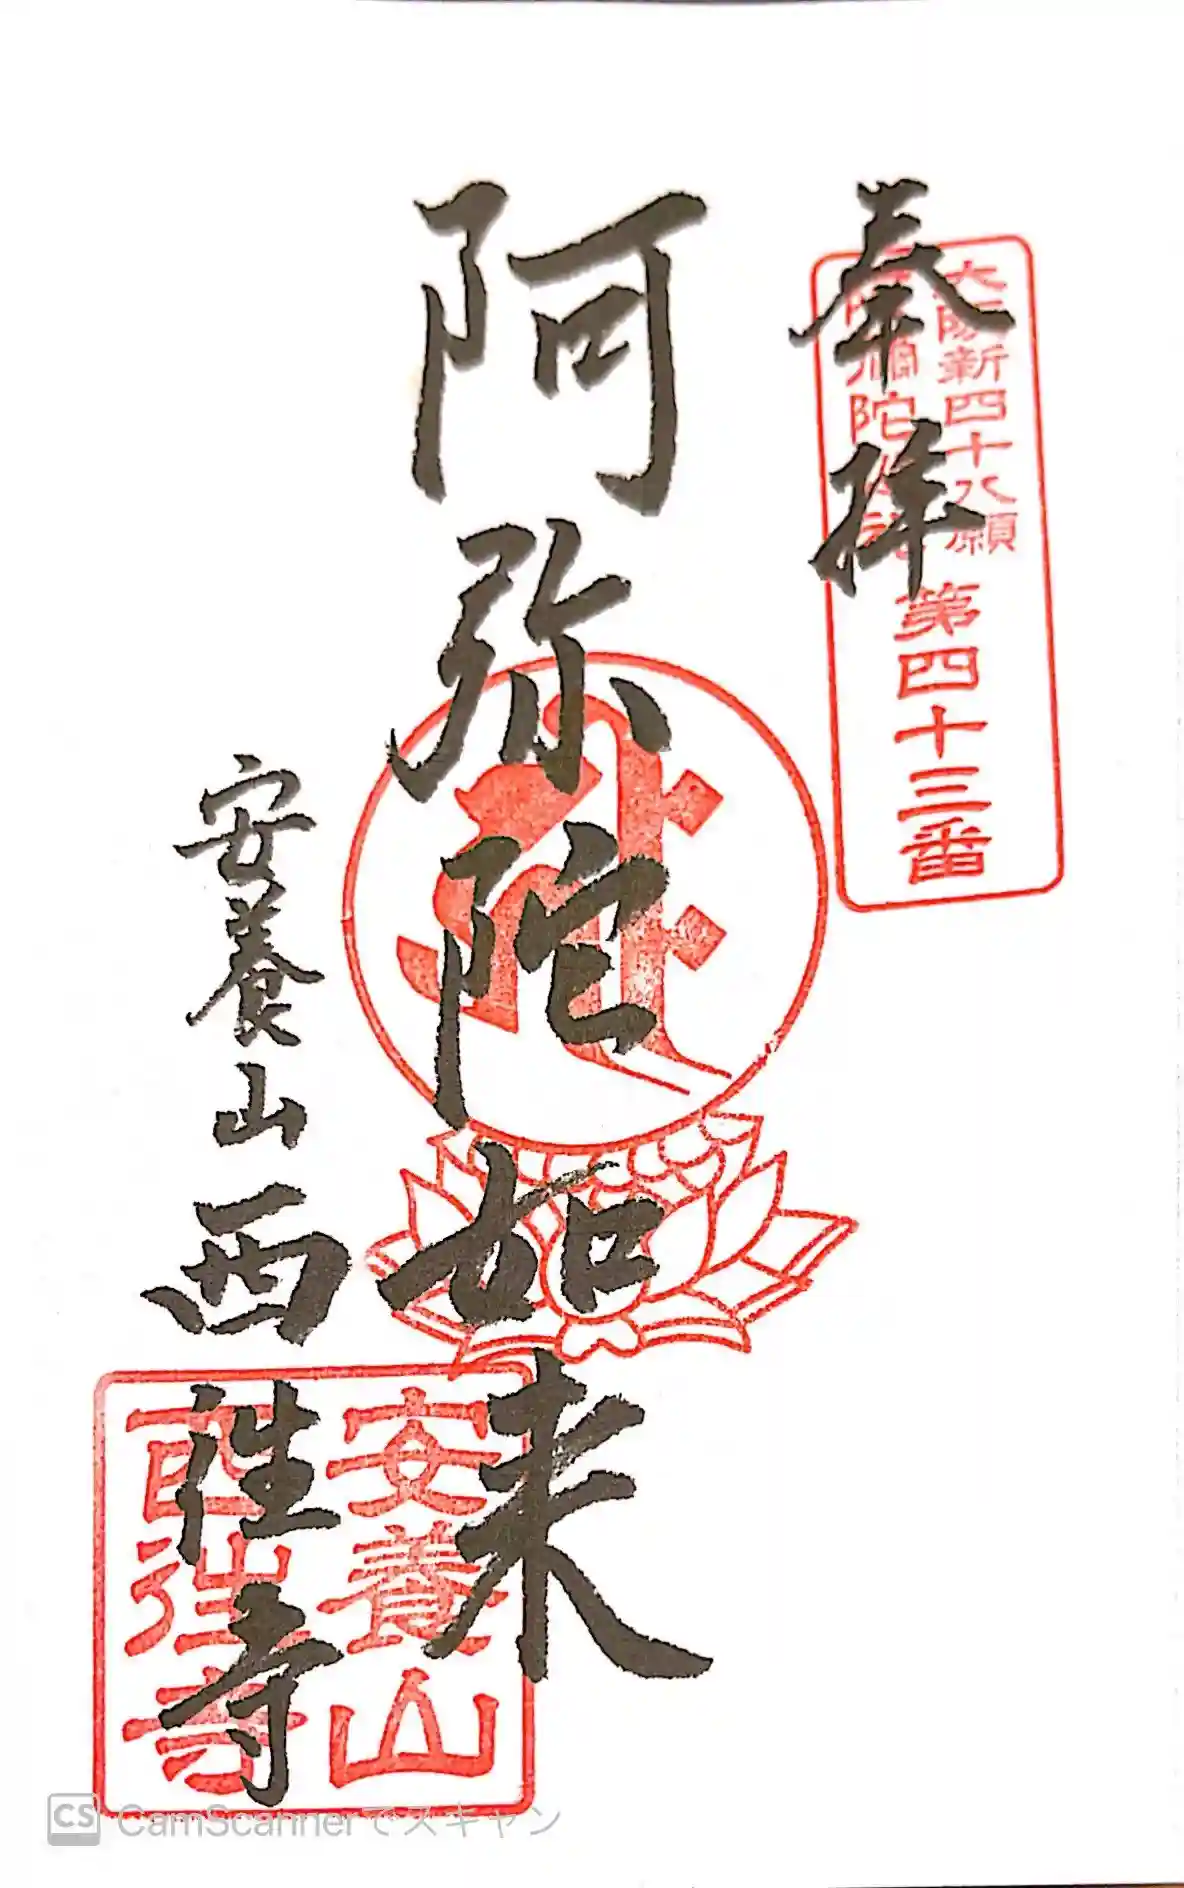 奉拝
大阪新四十八願
阿弥陀巡礼
第四十三番
阿弥陀如来
安養山西徃寺
安養山
西往寺
CS CamScannerでスキャン